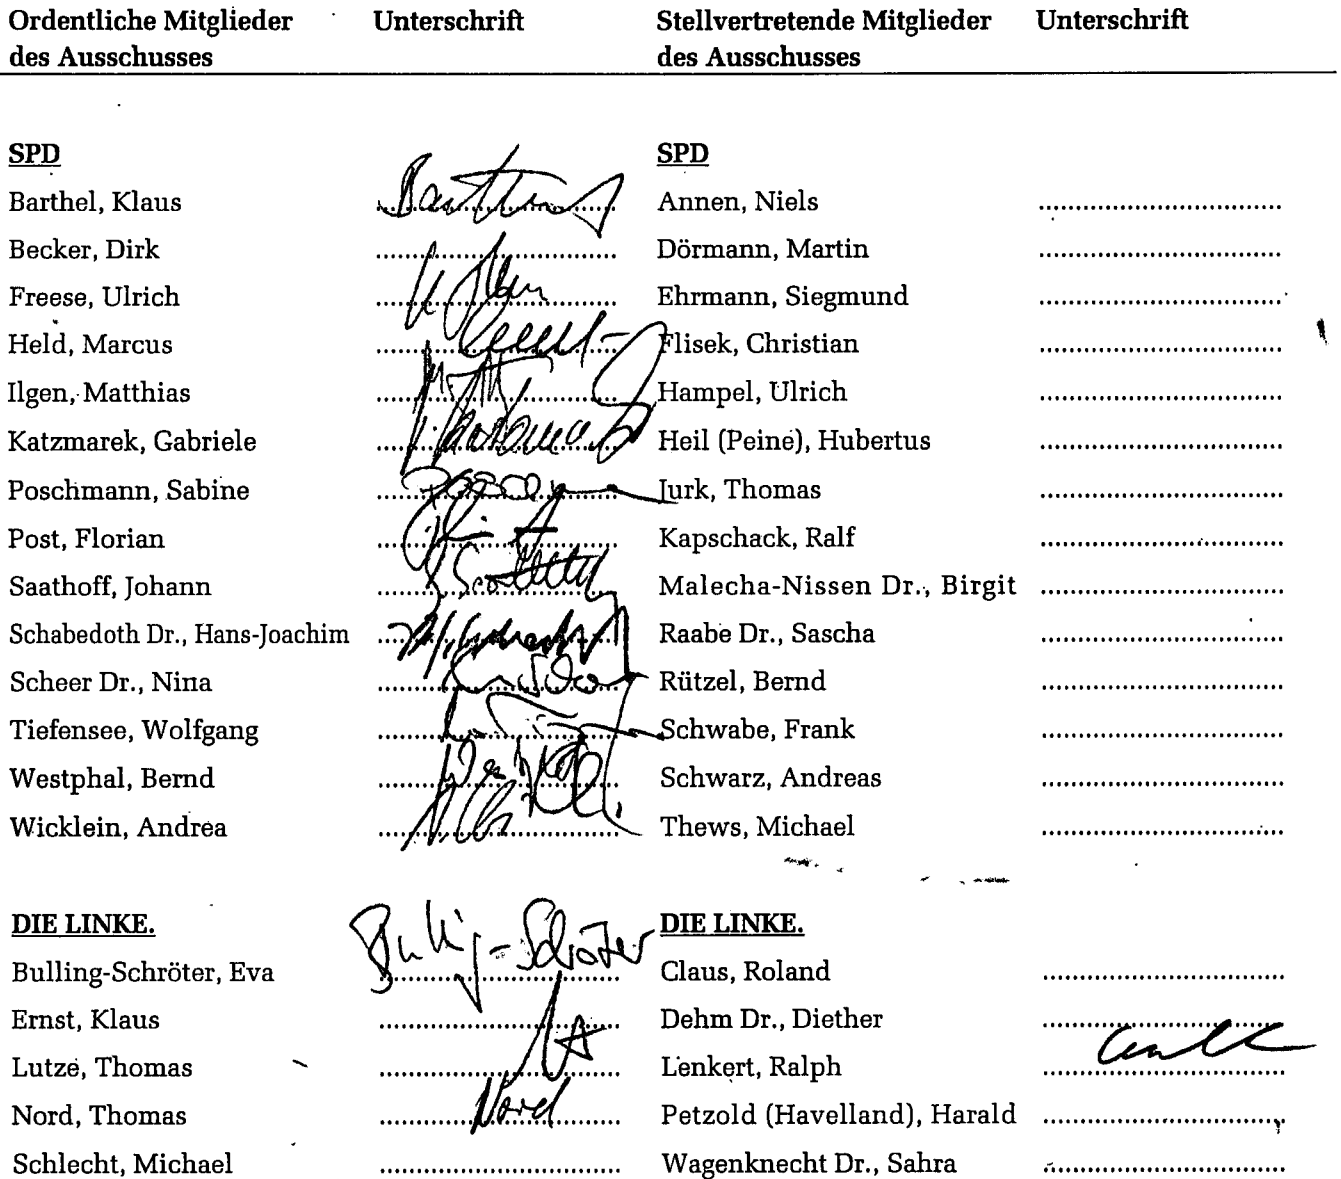 Ordentliche Mitglieder Unterschrift Stellvertretende Mitglieder Unterschrift
des Ausschusses des Ausschusses
SPD SPD
Barthel, Klaus Barthel Annen, Niels
Becker, Dirk Dörmann, Martin
Freese, Ulrich Ehrmann, Siegmund
Held, Marcus Flisek, Christian
Ilgen, Matthias Hampel, Ulrich
Katzmarek, Gabriele Heil (Peine), Hubertus
Poschmann, Sabine Jurk, Thomas
Post, Florian Kapschack, Ralf
Saathoff, Johann Malecha-Nissen Dr., Birgit
Schabedoth Dr., Hans-Joachim Raabe Dr., Sascha
Scheer Dr., Nina Rützel, Bernd
Tiefensee, Wolfgang Schwabe, Frank
Westphal, Bernd Schwarz, Andreas
Wicklein, Andrea Thews, Michael
DIE LINKE. DIE LINKE.
Bulling-Schröter, Eva Bulling-Schröter Claus, Roland
Ernst, Klaus Dehm Dr., Diether
Lutze, Thomas Lenkert, Ralph
Nord, Thomas Nord Petzold (Havelland), Harald
Schlecht, Michael Wagenknecht Dr., Sahra